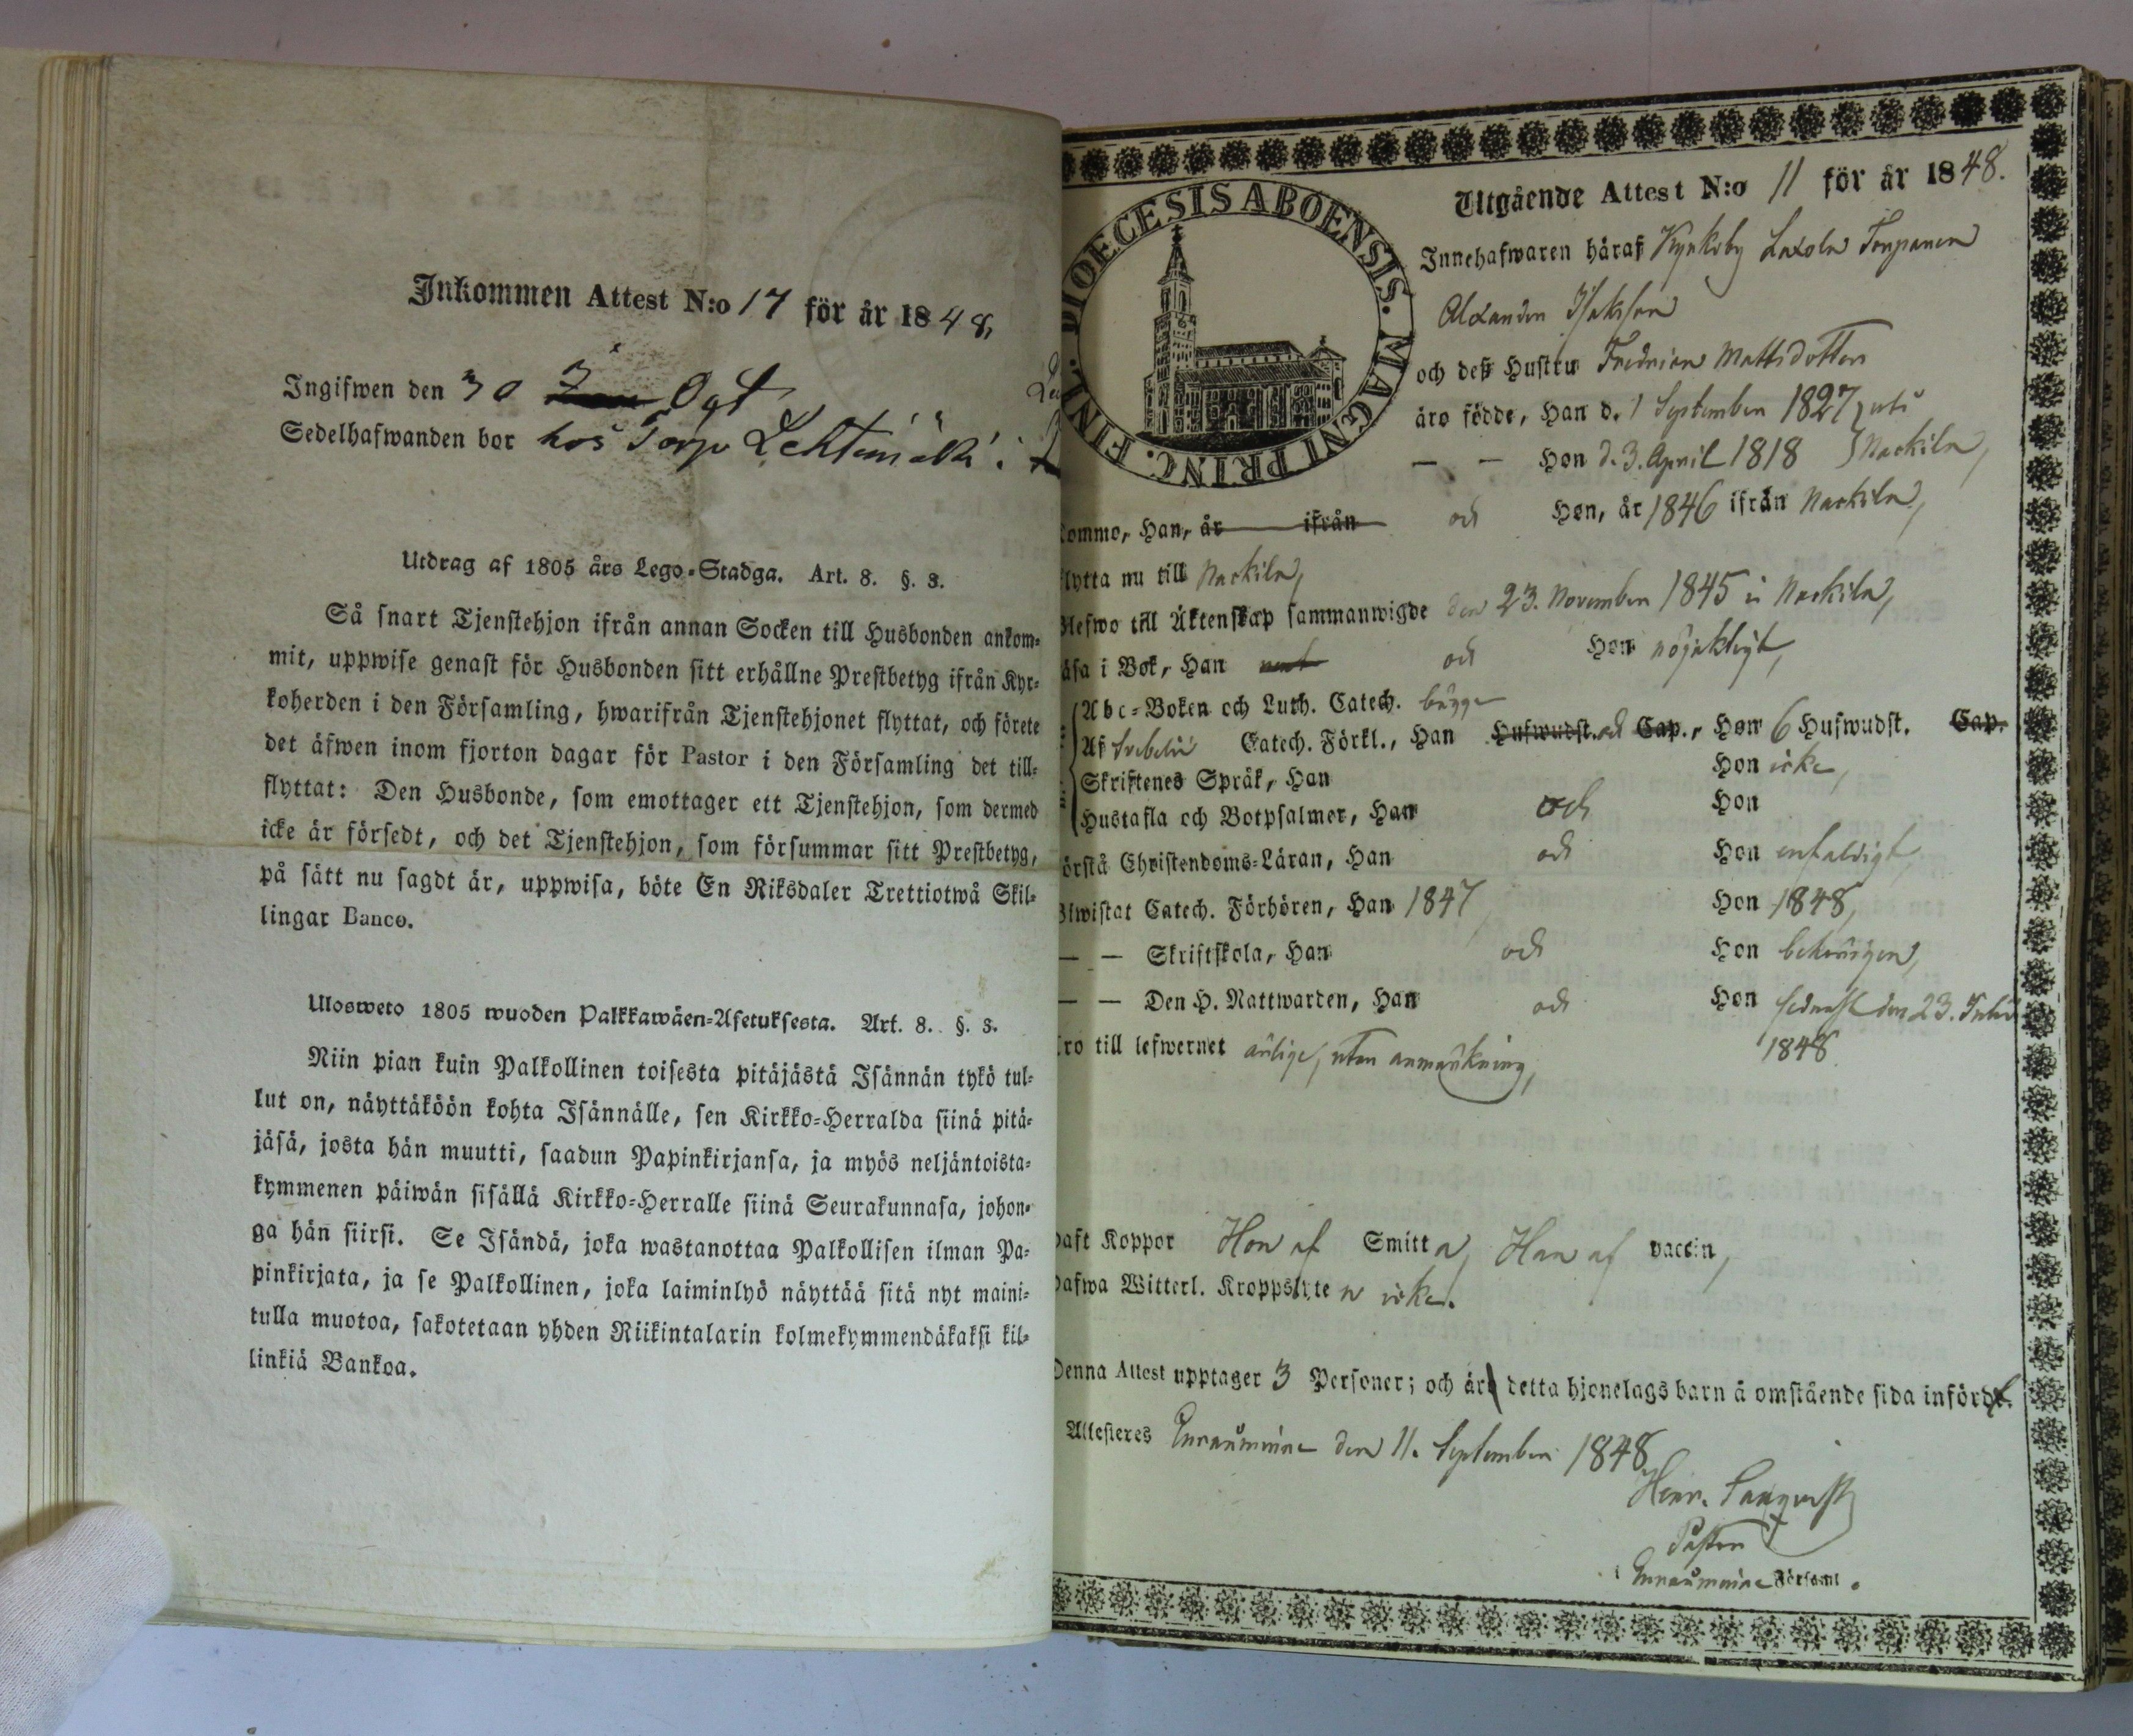 Inkommen Attest N:o 17 för år 1848,
Ingifwen den 30 Ogt
Sedelhafwanden bor hos Torp Lehtimäki i
Utdrag af 1805 års Lego-Stadga. Art. 8. §. 3.
Så snart Tjenstehjon ifrån annan Socken till Husbonden ankom-
mit, uppwise genast för Husbonden sitt erhållne Prestbetyg ifrån Kyr-
koherden i den Församling, hwarifrån Tjenstehjonet flyttat, och förete
det äfwen inom fjorton dagar för Pastor i den Församling det till-
flyttat: Den Husbonde, som emottager ett Tjenstehjon, som dermed
icke är försedt, och det Tjenstehjon, som försummar sitt Prestbetyg,
på sätt nu sagdt är, uppwisa, böte En Riksdaler Trettiotwå Skil-
lingar Banco.
Ulosweto 1805 wuoden Palkkawäen-Asetuksesta. Art. 8. §. 3.
Niin pian kuin Palkollinen toisesta pitäjästä Isännän tykö tul-
lut on, näyttäköön kohta Isännälle, sen Kirkko-Herralda siinä pitä-
jäsä, josta hän muutti, saadun Papinkirjansa, ja myös neljäntoista-
kymmenen päiwän sisällä Kirkko-Herralle siinä Seurakunnasa, johon-
ga hän siirsi. Se Isändä, joka wastanottaa Palkollisen ilman Pa-
pinkirjata, ja se Palkollinen, joka laiminlyö näyttää sitä nyt maini-
tulla muotoa, sakotetaan yhden Riikintalarin kolmekymmendäkaksi kil-
linkiä Bankoa.
DIOECESIS ABOENSIS. MAGNI PRINC. FINL.
Utgående Attest N:o 11 för år 1848.
Innehafwaren häraf Kyrkoby Laxola Torparen
Alexander Isaksson
och deß Hustru Fredrica Mattsdotter
äro födde, Han d. 1 September 1827 uti
— — Hon d. 3. April 1818 Nackila,
kommo, Han, år ifrån och Hon, år 1846 ifrån Nackila,
flytta nu till Nackila,
Blefwo till Äktenskap sammanwigde den 23. November 1845 i Nackila,
läsa i Bok, Han och Hon nöjaktigt,
Abc-Boken och Luth. Catech. bägge
Af Svebelii Catech. Förkl., Han Hufwudst. och Cap., Hon 6 Hufwudst. Cap.
Skriftenes Språk, Han Hon icke,
Hustafla och Botpsalmer, Han och Hon
örstå Christendoms-Läran, Han och Hon enfaldigt,
Biwistat Catech. Förhören, Han 1847 Hon 1848,
— — Skriftskola, Han och Hon behörigen,
— — Den H. Nattwarden, Han och Hon sednast den 23. Julii
1848.
Äro till lefwernet ärlige, utan anmärkning,
Haft Koppor Hon af Smitta, Han af vaccin,
Hafwa Witterl. Kroppslyte n icke.
Denna Attest upptager 3 Personer; och är detta hjonelags barn å omstående sida infördt.
Attesteres Euraåminne den 11. September 1848
Henr.
Pastor
i Euraåminne Församl.